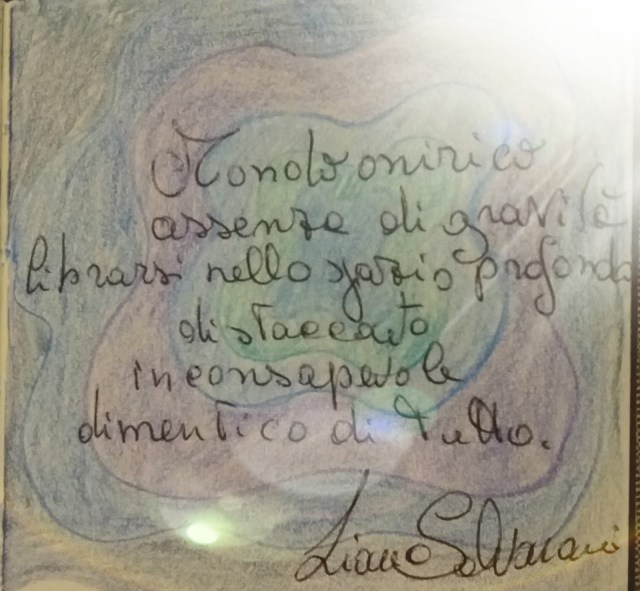 Mondo onirico
assenza di gravità
librarsi nello spazio profondo
distaccato
inconsapevole
dimentico di tutto.